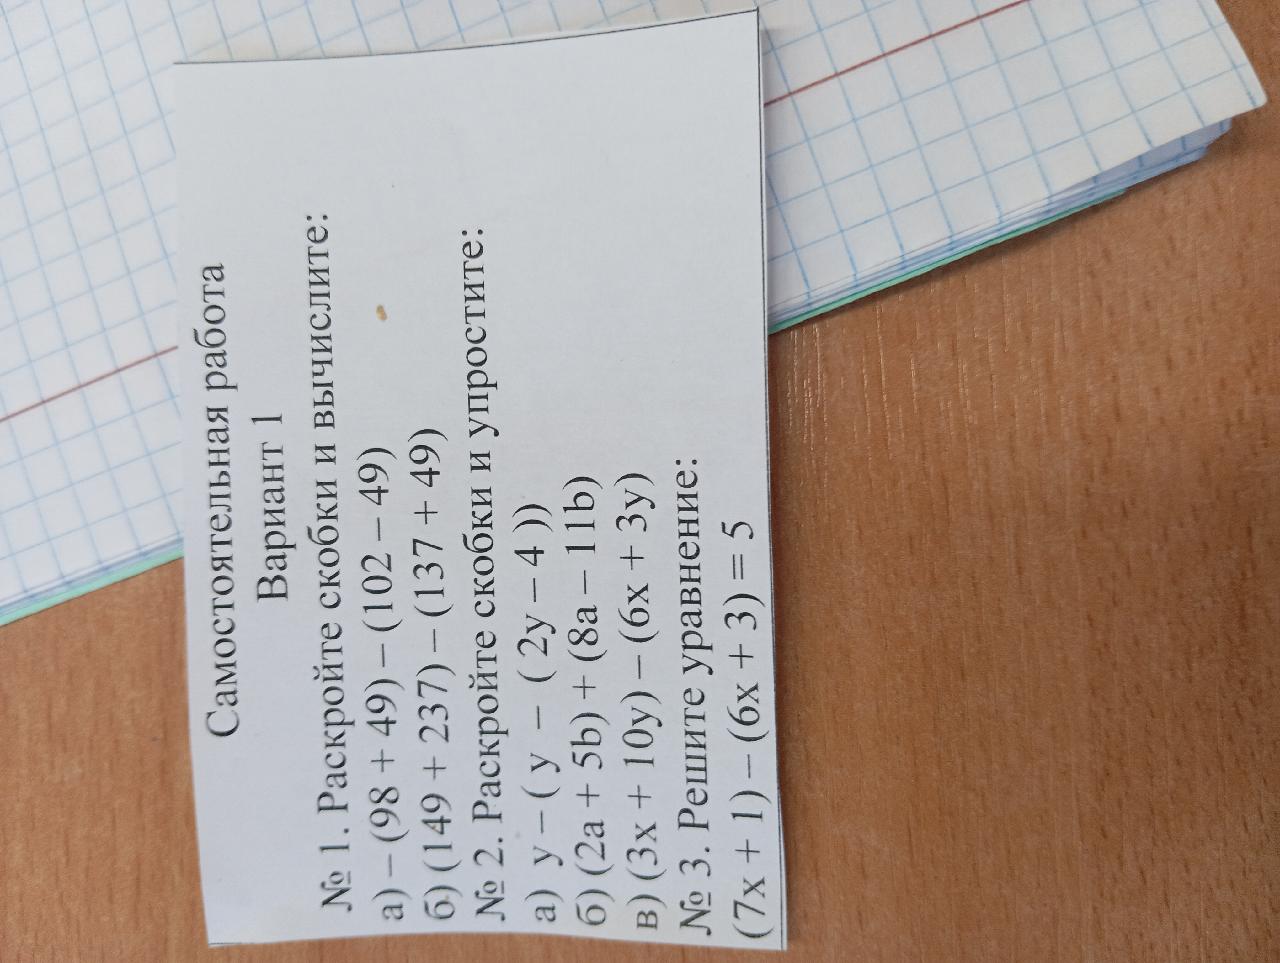 Самостоятельная работа
Вариант 1
№ 1. Раскройте скобки и вычислите:
а) – (98 + 49) – (102 – 49)
б) (149 + 237) – (137 + 49)
№ 2. Раскройте скобки и упростите:
а) у – ( у – ( 2у – 4 ))
б) (2a + 5b) + (8a – 11b)
в) (3х + 10у) – (6х + 3у)
№ 3. Решите уравнение:
(7х + 1) – (6х + 3) = 5